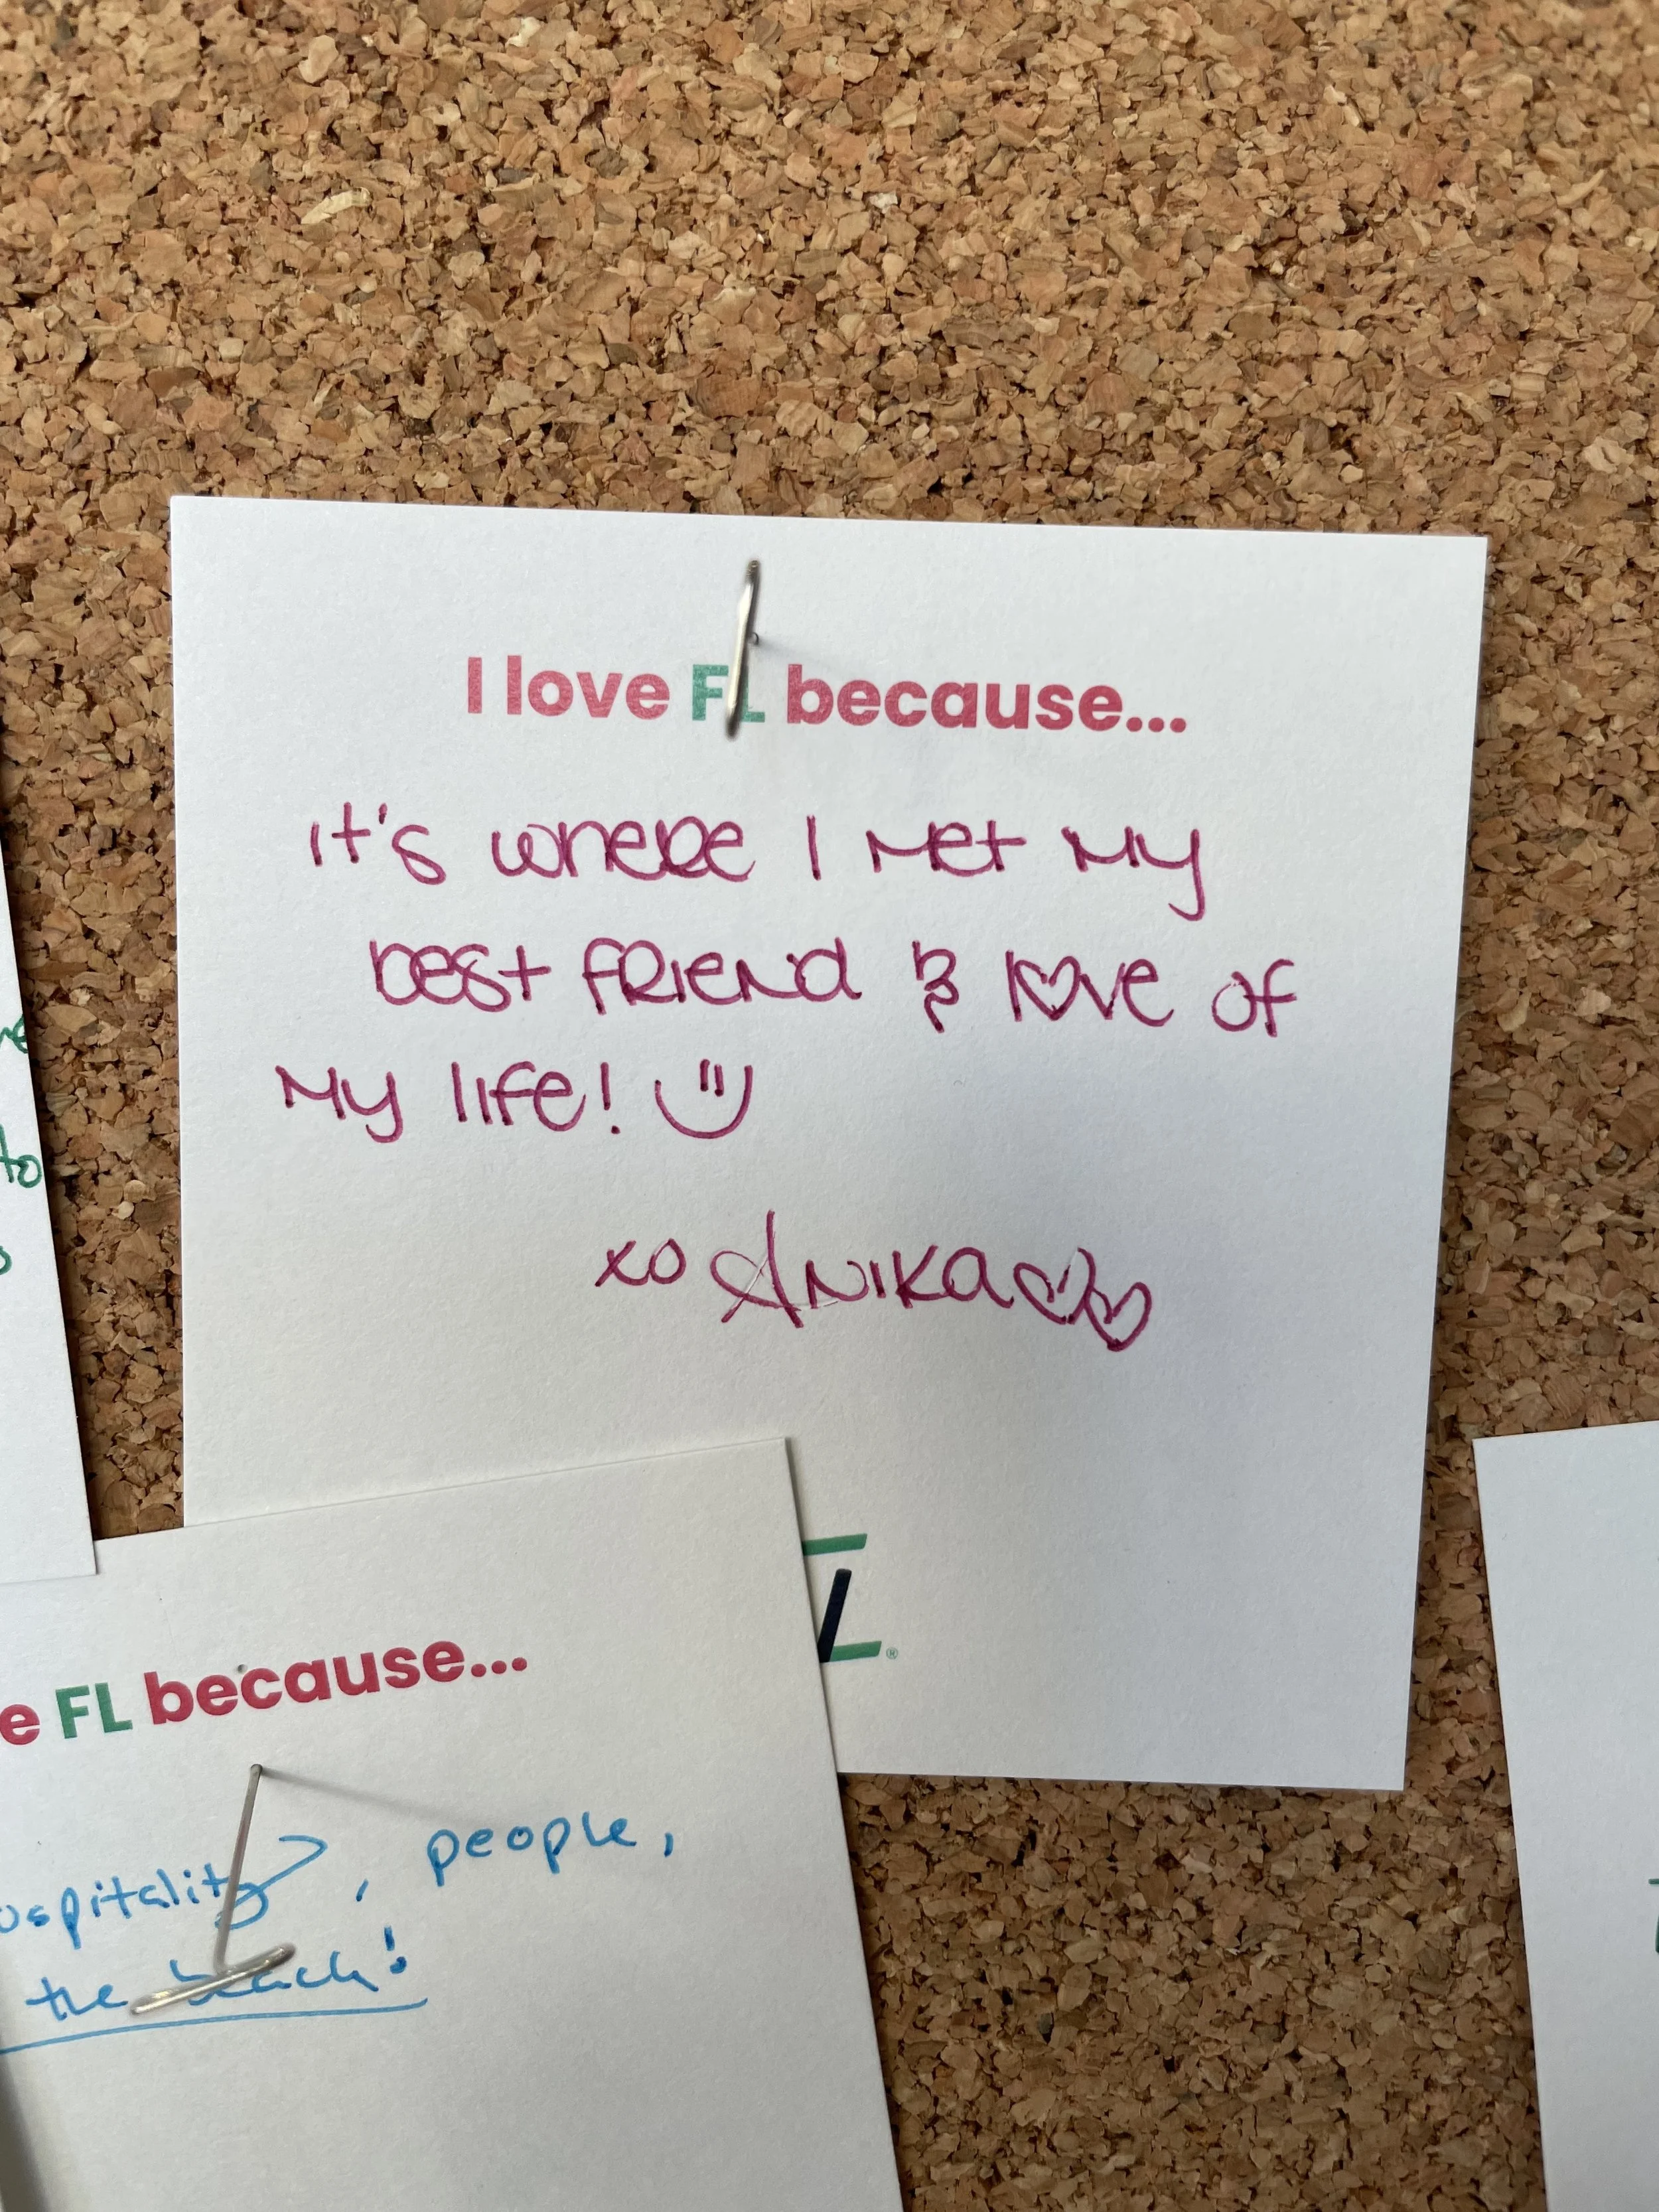 I love FL because...
It's where I met my
best friend & love of
my life!
xo Anika
®
FL because...
, people,
the beach!
to